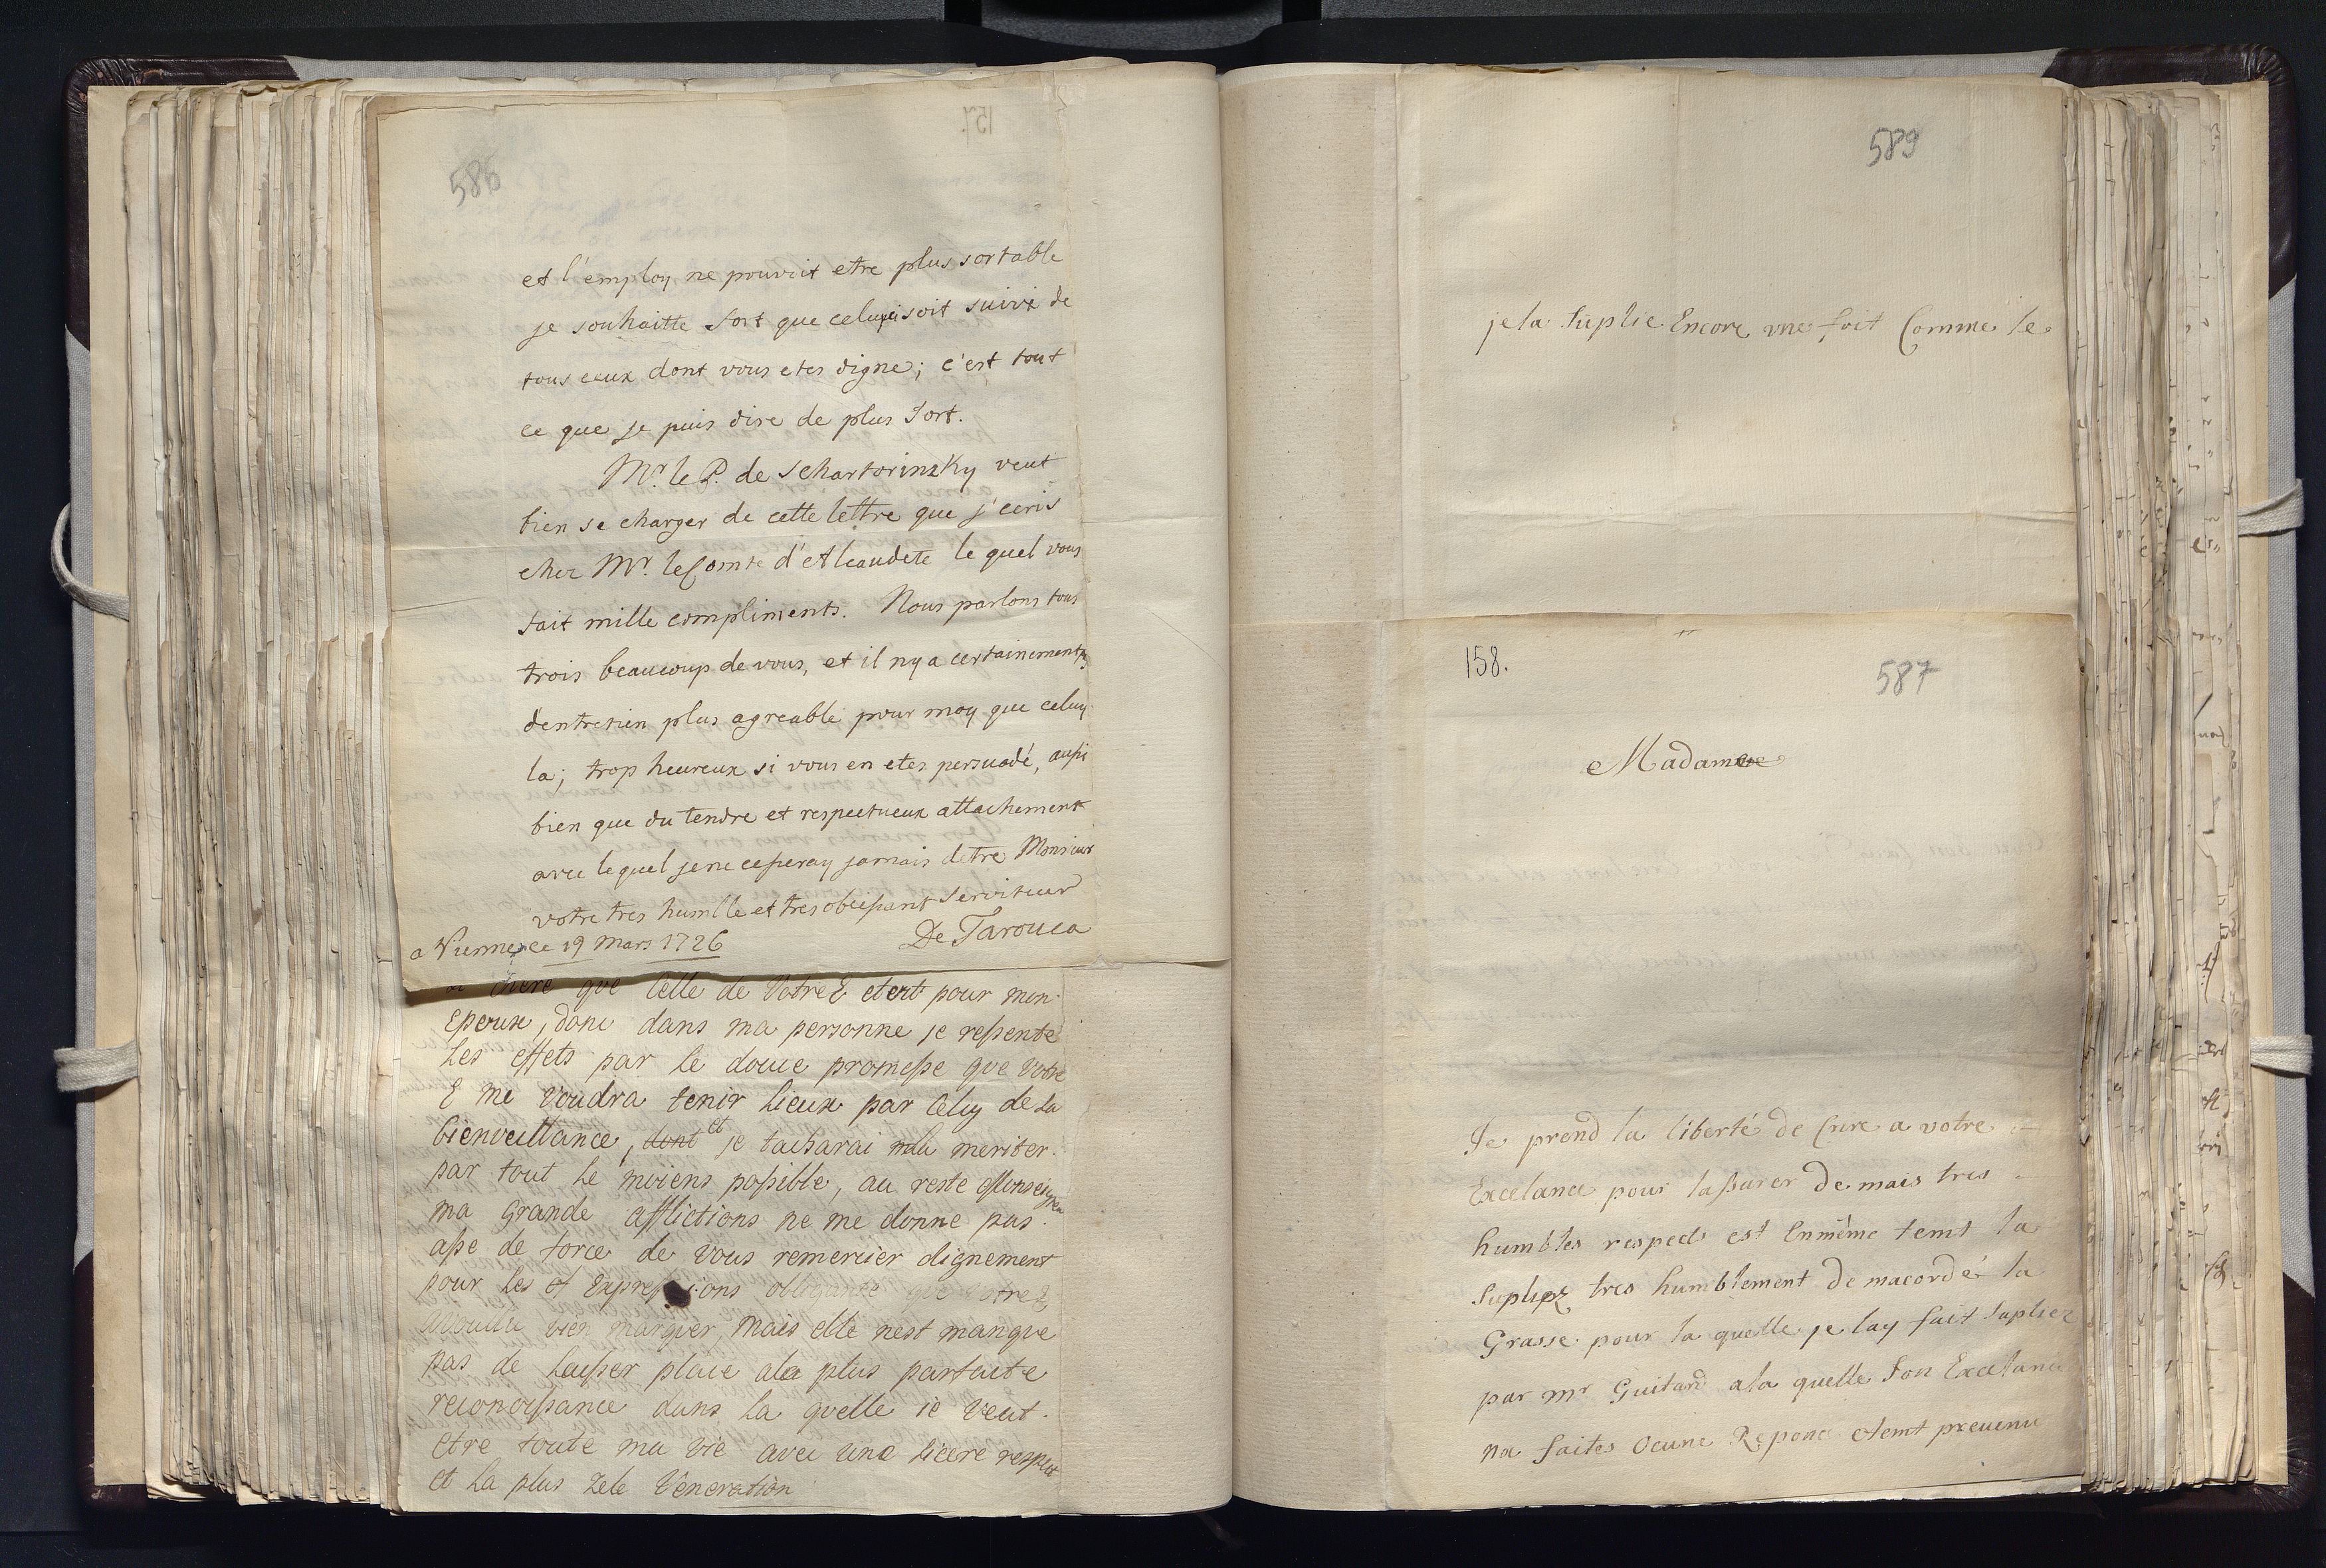 586
et l'employ ne pouvoit etre plus sortable
je souhaitte fort que celuyci soit suivi de
tous ceux dont vous etes digne; c'est tout
ce que je puis dire de plus fort.
Mr. le P. de Schartorinzky veut
bien se charger de cette lettre que j'ecris
chez Mr. le Comte d'Atleaudete le quel vous
fait mille compliments. Nous parlons tous
trois beaucoup de vous, et il ny a certainement
dentretien plus agreable pour moy que celuy
la; trop heureux si vous en etes persuadé, aussi
bien que du tendre et respectueux attachement
avec lequel je ne cesseray jamais detre Monsieur
votre tres humble et tres obeissant serviteur
De Tarouca
a Vienne ce 19 Mars 1726
chere que celle de Votre E etert pour mon
Epoux, donc dans ma personne je ressente
Les effets par le douce promesse que Votre
E me voudra tenir lieux par celuy de La
bienveillance, dont et je tacharai la meriter
par tout le moiens possible, au reste Monseigneu
ma grande afflictions ne me donne pas
asse de force de vous remercier dignement
pour les Expressions obligante que Votre E
bien marquer, mais elle nest manque
pas de laisser place ala plus parfaite
reconoissance dans la quelle ie veut
etre toute ma vie avec une sicere respect
et la plus zele Veneration
589
je la suplie Encore une foit Comme le
158.
587
Madame
Je prend la liberté de Crire a votre
Excelance pour lassurer de mais tres
humbles respects est Enmême temt la
Supliez tres humblement de macordé la
Grasse pour la quelle je lay fait Supliez
par mr Guitard ala quelle Son Excelance
na faites ocune Reponce etemt prevenu